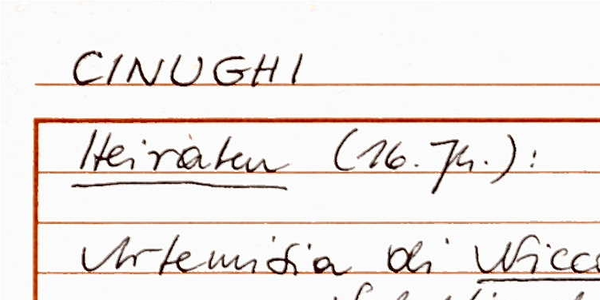 CINUGHI
Heiraten (16. Jh.):
Artemisia di